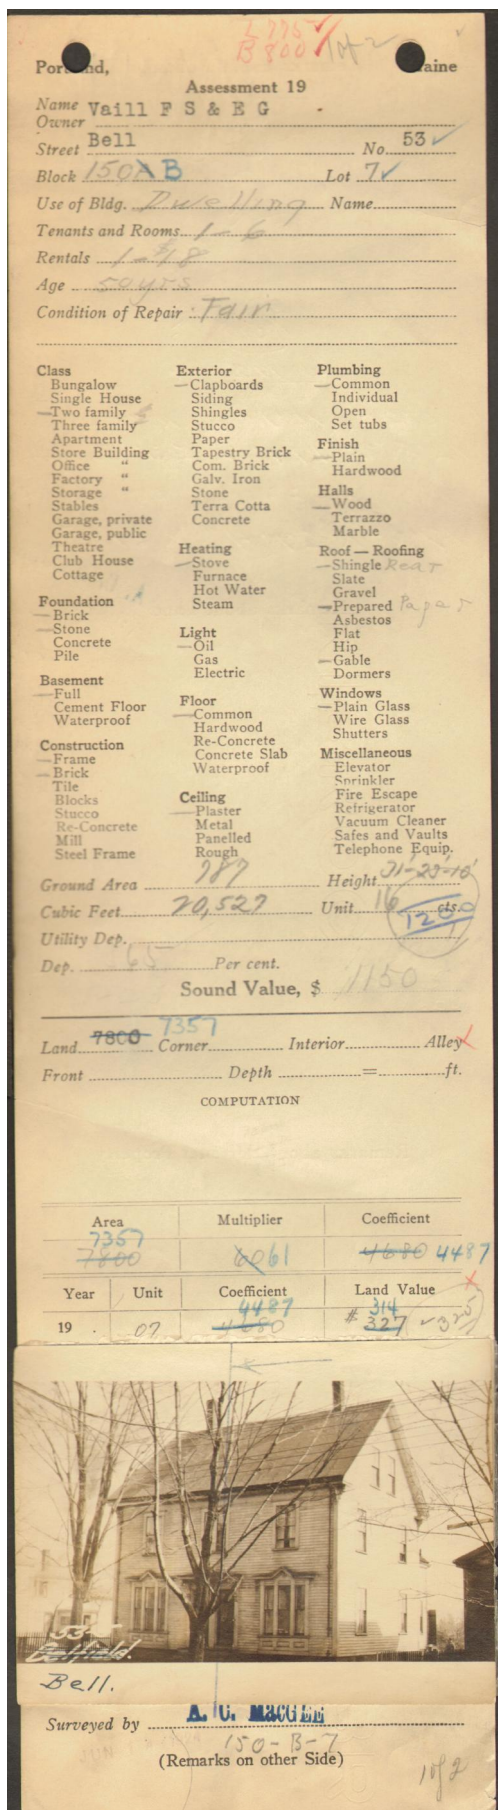 L 775
B 800 1 of 2
Portland, Maine
Assessment 19
Name Vaill F S & E G
Owner
Street Bell No. 53
Block 150A B Lot 7
Use of Bldg. Dwelling Name
Tenants and Rooms 1 - 6
Rentals 1 - $18
Age 50 yrs
Condition of Repair Fair
Class
Bungalow
Single House
Two family
Three family
Apartment
Store Building
Office "
Factory "
Storage "
Stables
Garage, private
Garage, public
Theatre
Club House
Cottage
Foundation
Brick
Stone
Concrete
Pile
Basement
Full
Cement Floor
Waterproof
Construction
Frame
Brick
Tile
Blocks
Stucco
Re-Concrete
Mill
Steel Frame
Exterior
Clapboards
Siding
Shingles
Stucco
Paper
Tapestry Brick
Com. Brick
Galv. Iron
Stone
Terra Cotta
Concrete
Heating
Stove
Furnace
Hot Water
Steam
Light
Oil
Gas
Electric
Floor
Common
Hardwood
Re-Concrete
Concrete Slab
Waterproof
Ceiling
Plaster
Metal
Panelled
Rough
Plumbing
Common
Individual
Open
Set tubs
Finish
Plain
Hardwood
Halls
Wood
Terrazzo
Marble
Roof — Roofing
Shingle Rear
Slate
Gravel
Prepared Paper
Asbestos
Flat
Hip
Gable
Dormers
Windows
Plain Glass
Wire Glass
Shutters
Miscellaneous
Elevator
Sprinkler
Fire Escape
Refrigerator
Vacuum Cleaner
Safes and Vaults
Telephone Equip.
Ground Area 787 Height 31'-23'-10'
Cubic Feet 20,527 Unit 16 cts.
1200
Utility Dep.
Dep. 65 Per cent.
Sound Value, $ 1150
Land 7800 7357 Corner Interior Alley
Front Depth = ft.
COMPUTATION
Area Multiplier Coefficient
7357
7800 60 61 4680 4487
Year Unit Coefficient Land Value
4487 314
19 07 4680 # 327 325
53-
Bell.
Surveyed by A. C. MacGEE
150-B-7
(Remarks on other Side)
1 of 2